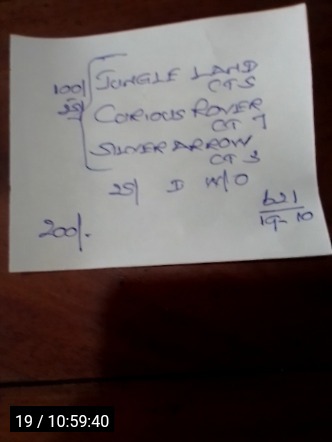 100/ JUNGLE LAND
CTS
25/ CORIOUS ROVER
CT 7
SILVER ARROW
CT 3
25/ D W/O
200/.
621
19-10
19 / 10:59:40